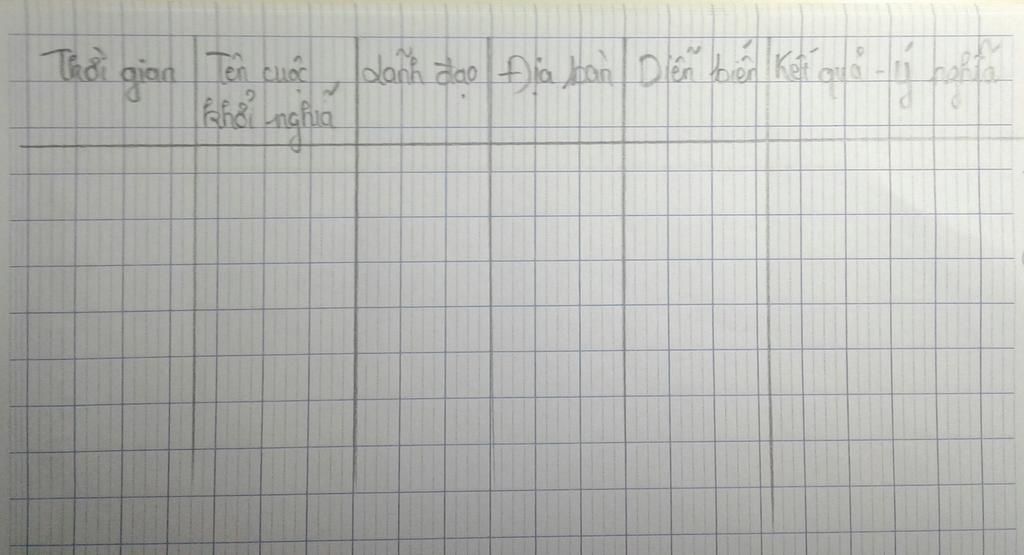 Thời gian
Tên cuộc
khởi nghĩa
lãnh đạo
Địa bàn
Diễn biến
Kết quả - ý nghĩa